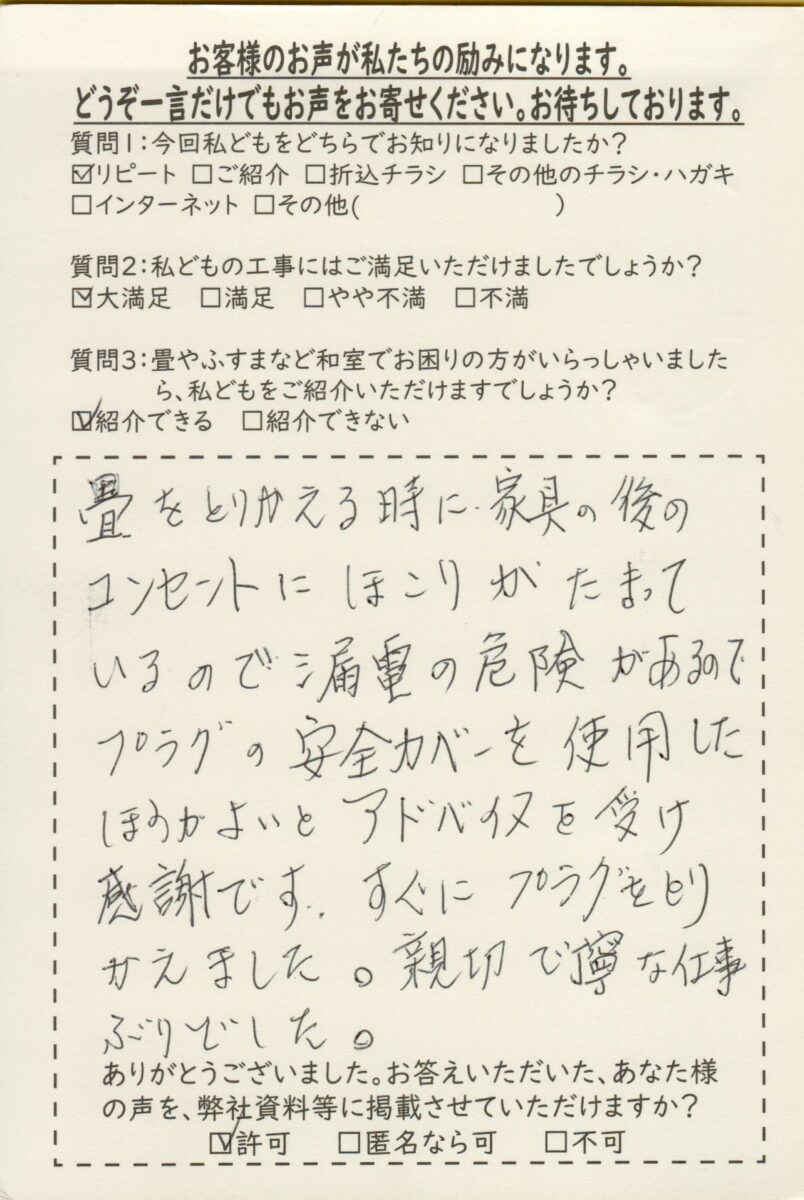 お客様のお声が私たちの励みになります。
どうぞ一言だけでもお声をお寄せください。お待ちしております。
質問1:今回私どもをどちらでお知りになりましたか?
☑リピート □ご紹介 □折込チラシ □その他のチラシ・ハガキ
□インターネット □その他( )
質問2:私どもの工事にはご満足いただけましたでしょうか?
☑大満足 □満足 □やや不満 □不満
質問3:畳やふすまなど和室でお困りの方がいらっしゃいました
ら、私どもをご紹介いただけますでしょうか?
☑紹介できる □紹介できない
畳をとりかえる時に家具の後の
コンセントにほこりがたまって
いるので漏電の危険があるので
プラグの安全カバーを使用した
ほうがよいとアドバイスを受け
感謝です。すぐにプラグをとり
かえました。親切で寧な仕事
ぶりでした。
ありがとうございました。お答えいただいた、あなた様
の声を、弊社資料等に掲載させていただけますか?
☑許可 □匿名なら可 □不可